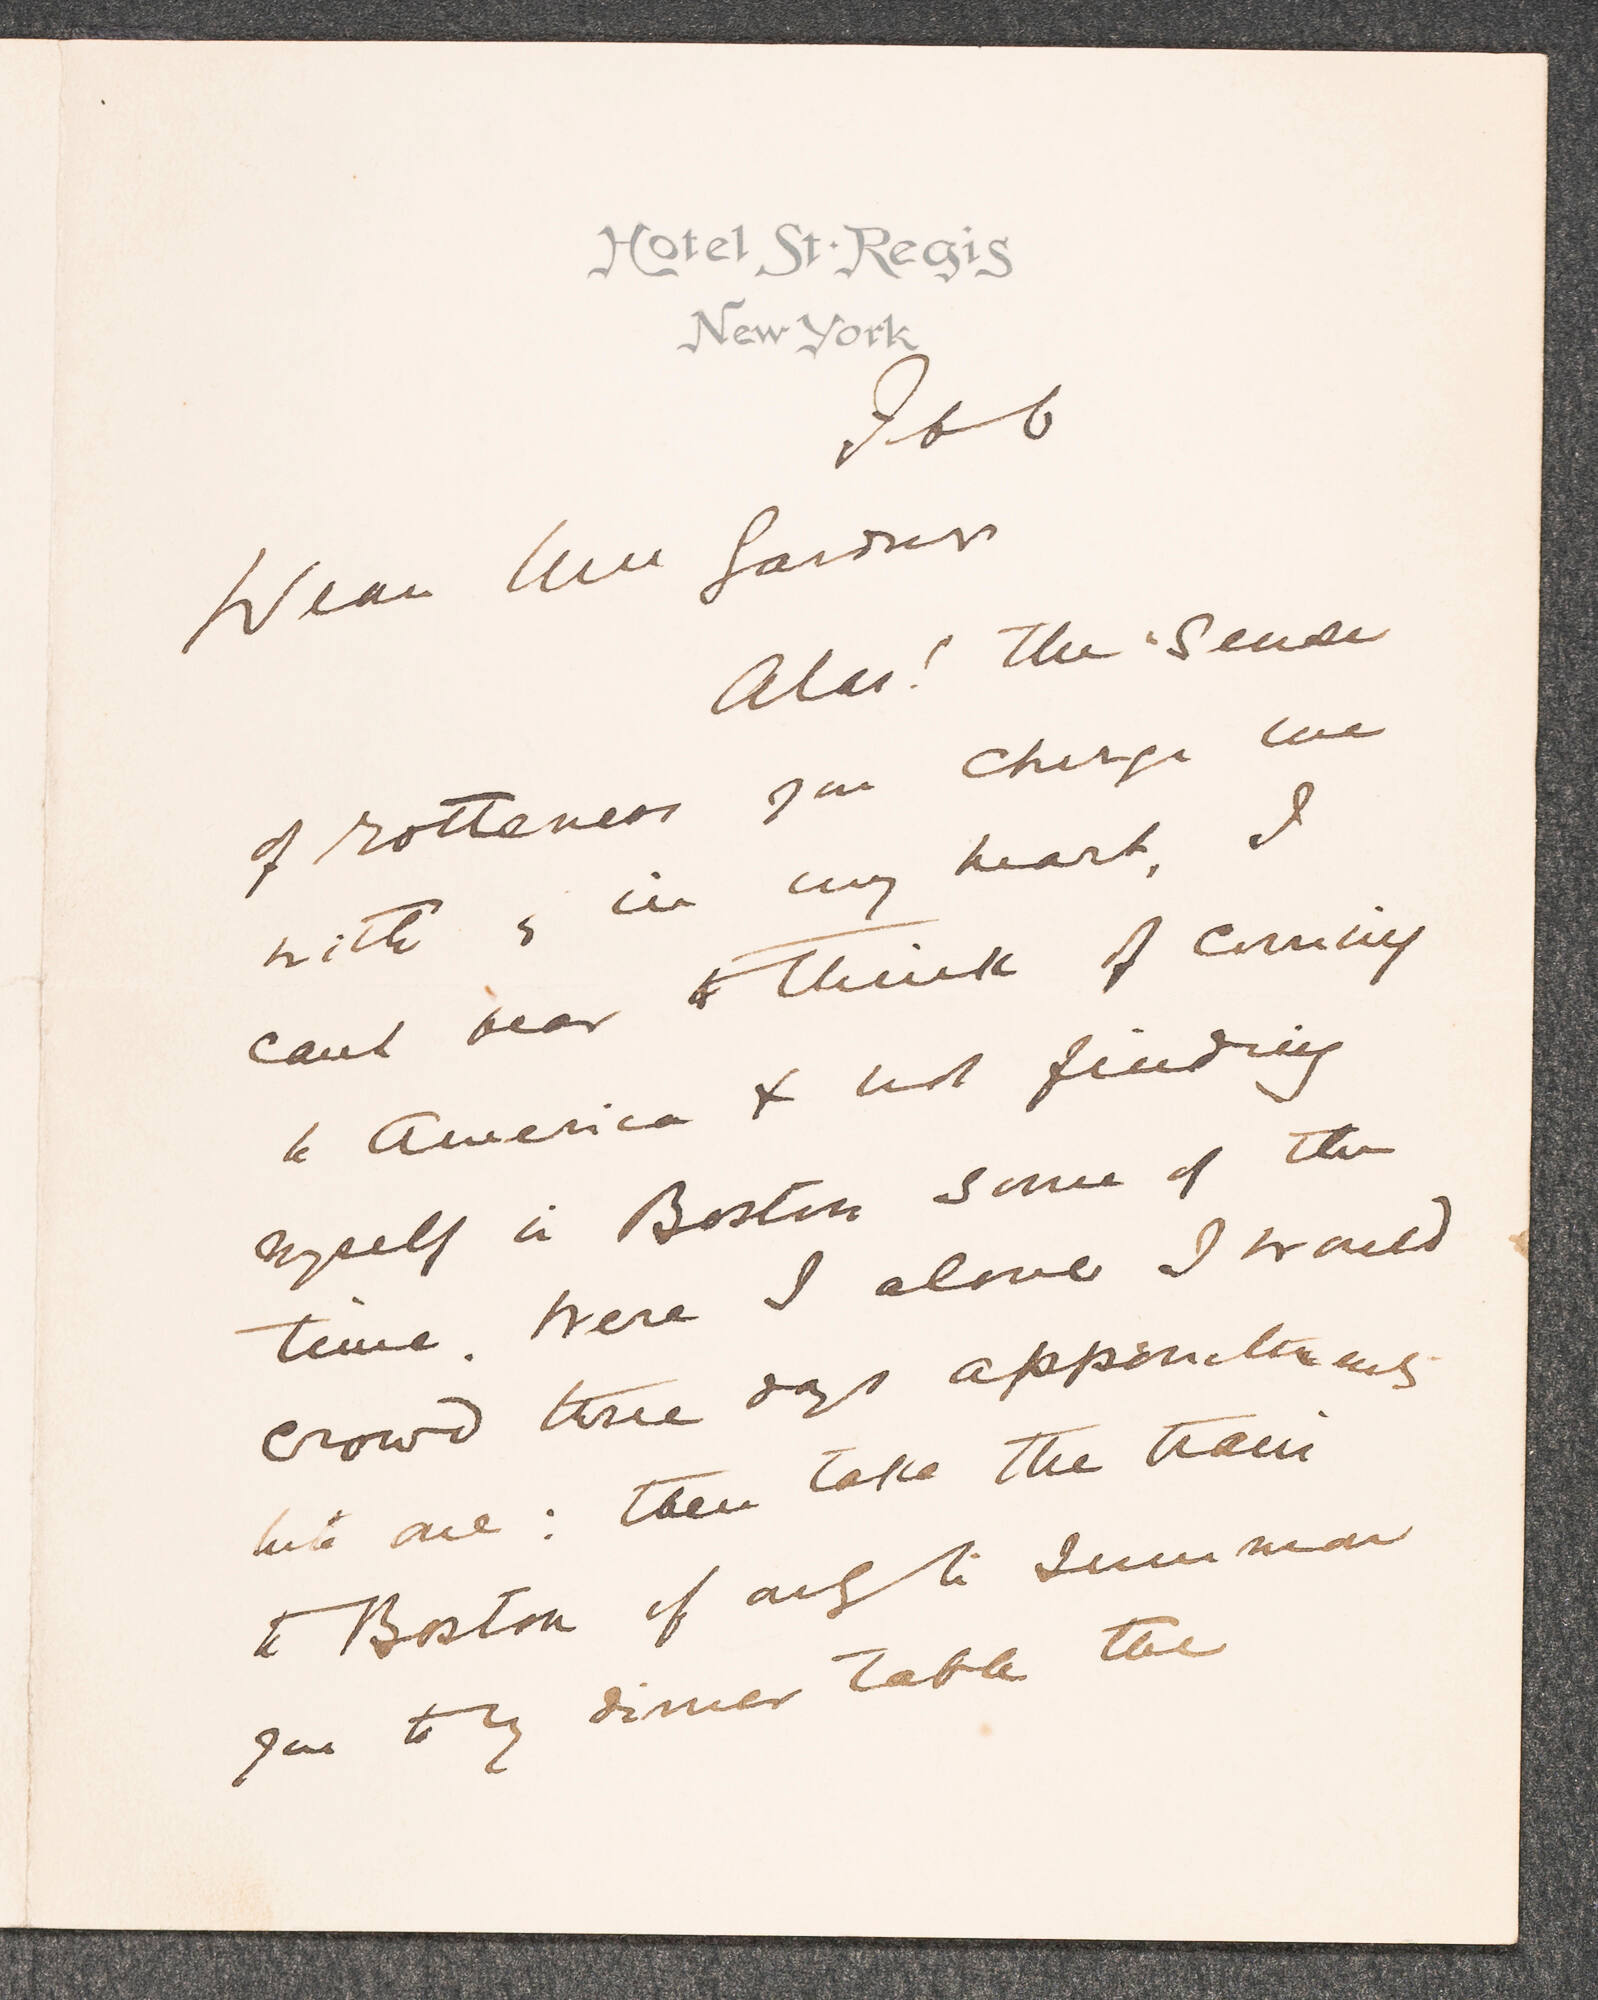 Hotel St. Regis
New York
Feb 6
Dear Mrs Gardner
Alas! The "Sense
of rotteness you charge me
with is in my heart, I
cant bear to think of coming
to America & not finding
myself in Boston some of the
time. Were I alone I would
crowd three days appointments
into one: then take the train
to Boston if only to summon
you to my dinner table the